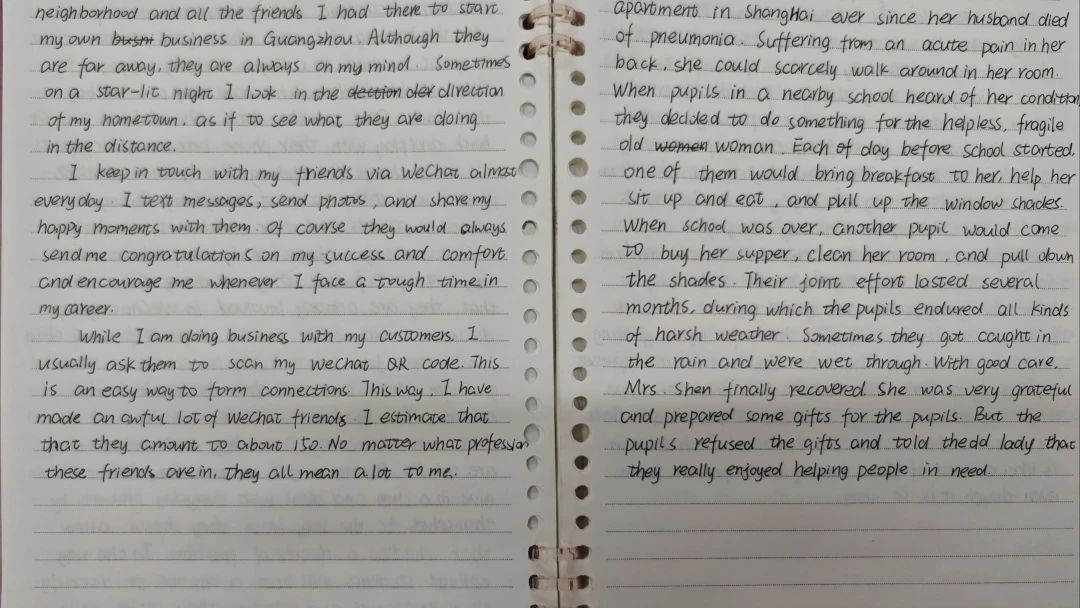 neighborhood and all the friends I had there to start
my own busni business in Guangzhou. Although they
are far away, they are always on my mind. Sometimes
on a star-lit night I look in the dection der direction
of my hometown, as if to see what they are doing
in the distance.
I keep in touch with my friends via WeChat almost
everyday. I text messages, send photos, and share my
happy moments with them. Of course they would always
send me congratulations on my success and comfort
and encourage me whenever I face a tough time in
my career.
While I am doing business with my customers, I
usually ask them to scan my WeChat QR code. This
is an easy way to form connections. This way, I have
made an awful lot of WeChat friends. I estimate that
that they amount to about 150. No matter what profession
these friends are in, they all mean a lot to me.
apartment in Shanghai ever since her husband died
of pneumonia. Suffering from an acute pain in her
back, she could scarcely walk around in her room.
When pupils in a nearby school heard of her condition,
they decided to do something for the helpless, fragile
old women woman. Each of day before school started,
one of them would bring breakfast to her, help her
sit up and eat, and pull up the window shades.
When school was over, another pupil would come
to buy her supper, clean her room, and pull down
the shades. Their joint effort lasted several
months, during which the pupils endured all kinds
of harsh weather. Sometimes they got caught in
the rain and were wet through. With good care,
Mrs. Shen finally recovered. She was very grateful
and prepared some gifts for the pupils. But the
pupils refused the gifts and told the old lady that
they really enjoyed helping people in need.